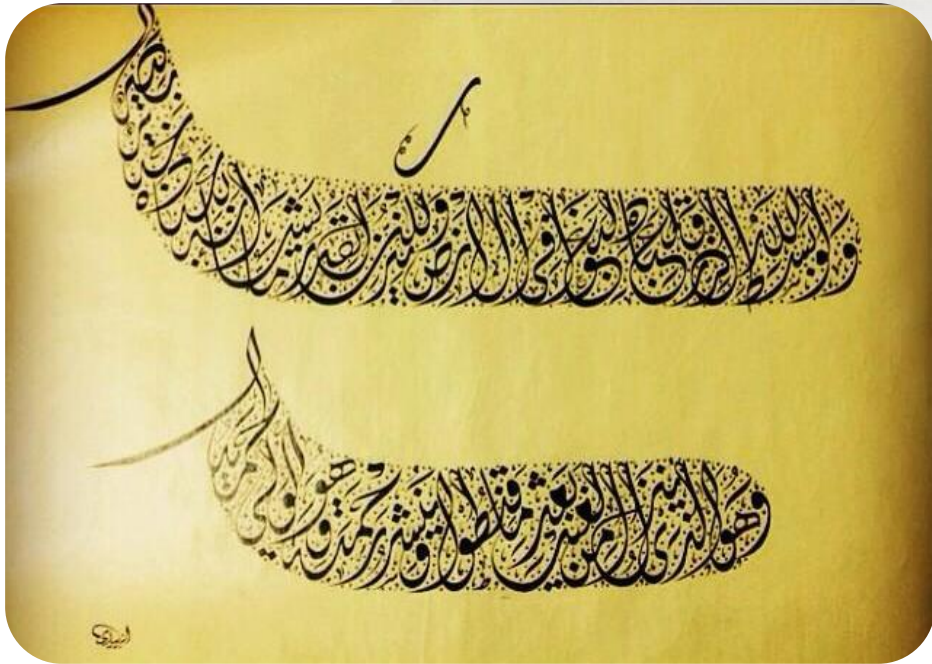 ولو بسط الله الرزق لعباده لبغوا في الأرض ولكن ينزل بقدر ما يشاء إنه بعباده خبير بصير
وهو الذي ينزل الغيث من بعد ما قنطوا وينشر رحمته وهو الولي الحميد